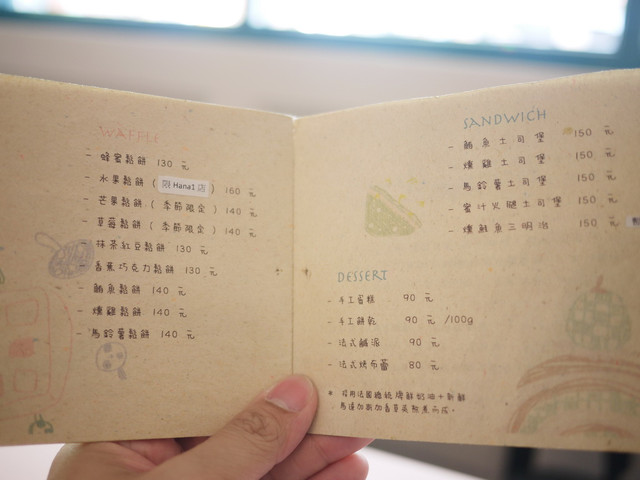 WAFFLE
- 蜂蜜鬆餅 130 元
- 水果鬆餅 ( 限 Hana1 店 ) 160 元
- 芒果鬆餅 ( 季節限定 ) 140 元
- 草莓鬆餅 ( 季節限定 ) 140 元
- 抹茶紅豆鬆餅 130 元
- 香蕉巧克力鬆餅 130 元
- 鮪魚鬆餅 140 元
- 燻雞鬆餅 140 元
- 馬鈴薯鬆餅 140 元
SANDWICH
- 鮪魚土司堡 150 元
- 燻雞土司堡 150 元
- 馬鈴薯土司堡 150 元
- 蜜汁火腿土司堡 150 元
- 燻鮭魚三明治 150 元
DESSERT
- 手工蛋糕 90 元
- 手工餅乾 90 元 /100g
- 法式鹹派 90 元
- 法式烤布蕾 80 元
* 採用法國總統牌鮮奶油+新鮮
馬達加斯加香草莢熬煮而成。